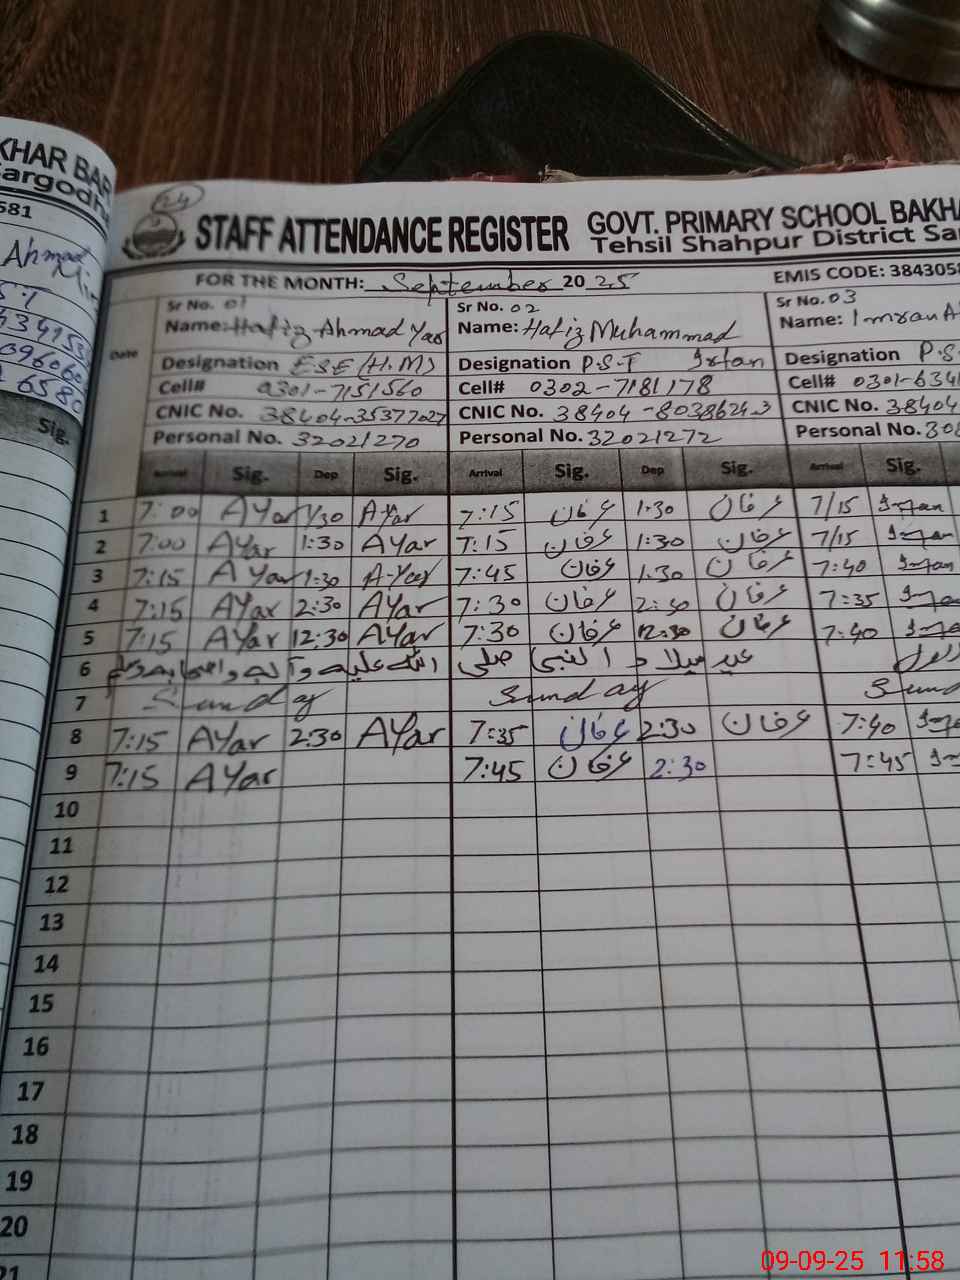 KHAR BAR
Sargodha
581
Ahmad
24
STAFF ATTENDANCE REGISTER GOVT. PRIMARY SCHOOL BAKHA
Tehsil Shahpur District Sar
FOR THE MONTH: September 2025 EMIS CODE: 3843058
Date
Sr No. 01 Sr No. 02 Sr No. 03
Name: Hafiz Ahmad Yar Name: Hafiz Muhammad Irfan Name: Imran A
Designation E.S.E (H.M) Designation P.S.T Designation P.S
Cell# 0301-7151560 Cell# 0302-7181178 Cell# 0301-634
CNIC No. 38404-35377027 CNIC No. 38404-8038624-3 CNIC No. 38404
Personal No. 32021270 Personal No. 32021272 Personal No. 30
Sig.
Arrival Sig. Dep Sig. Arrival Sig. Dep Sig. Arrival Sig.
1 7:00 AYar 1/30 AYar 7:15 عرفان 1:30 عرفان 7/15 Imran
2 7:00 AYar 1:30 AYar 7:15 عرفان 1:30 عرفان 7/15 Imran
3 7:15 AYar 1:30 A-Yar 7:45 عرفان 1:30 عرفان 7:40 Imran
4 7:15 AYar 2:30 AYar 7:30 عرفان 2:30 عرفان 7:35 Imra
5 7:15 AYar 12:30 AYar 7:30 عرفان 12:30 عرفان 7:40 Imra
6 عید میلاد النبی صلی اللہ علیہ وآلہ
7 Sunday Sunday Sund
8 7:15 AYar 2:30 AYar 7:35 عرفان 2:30 عرفان 7:40 Imra
9 7:15 AYar 7:45 عرفان 2:30 7:45 Im
10
11
12
13
14
15
16
17
18
19
20
21
09-09-25 11:58